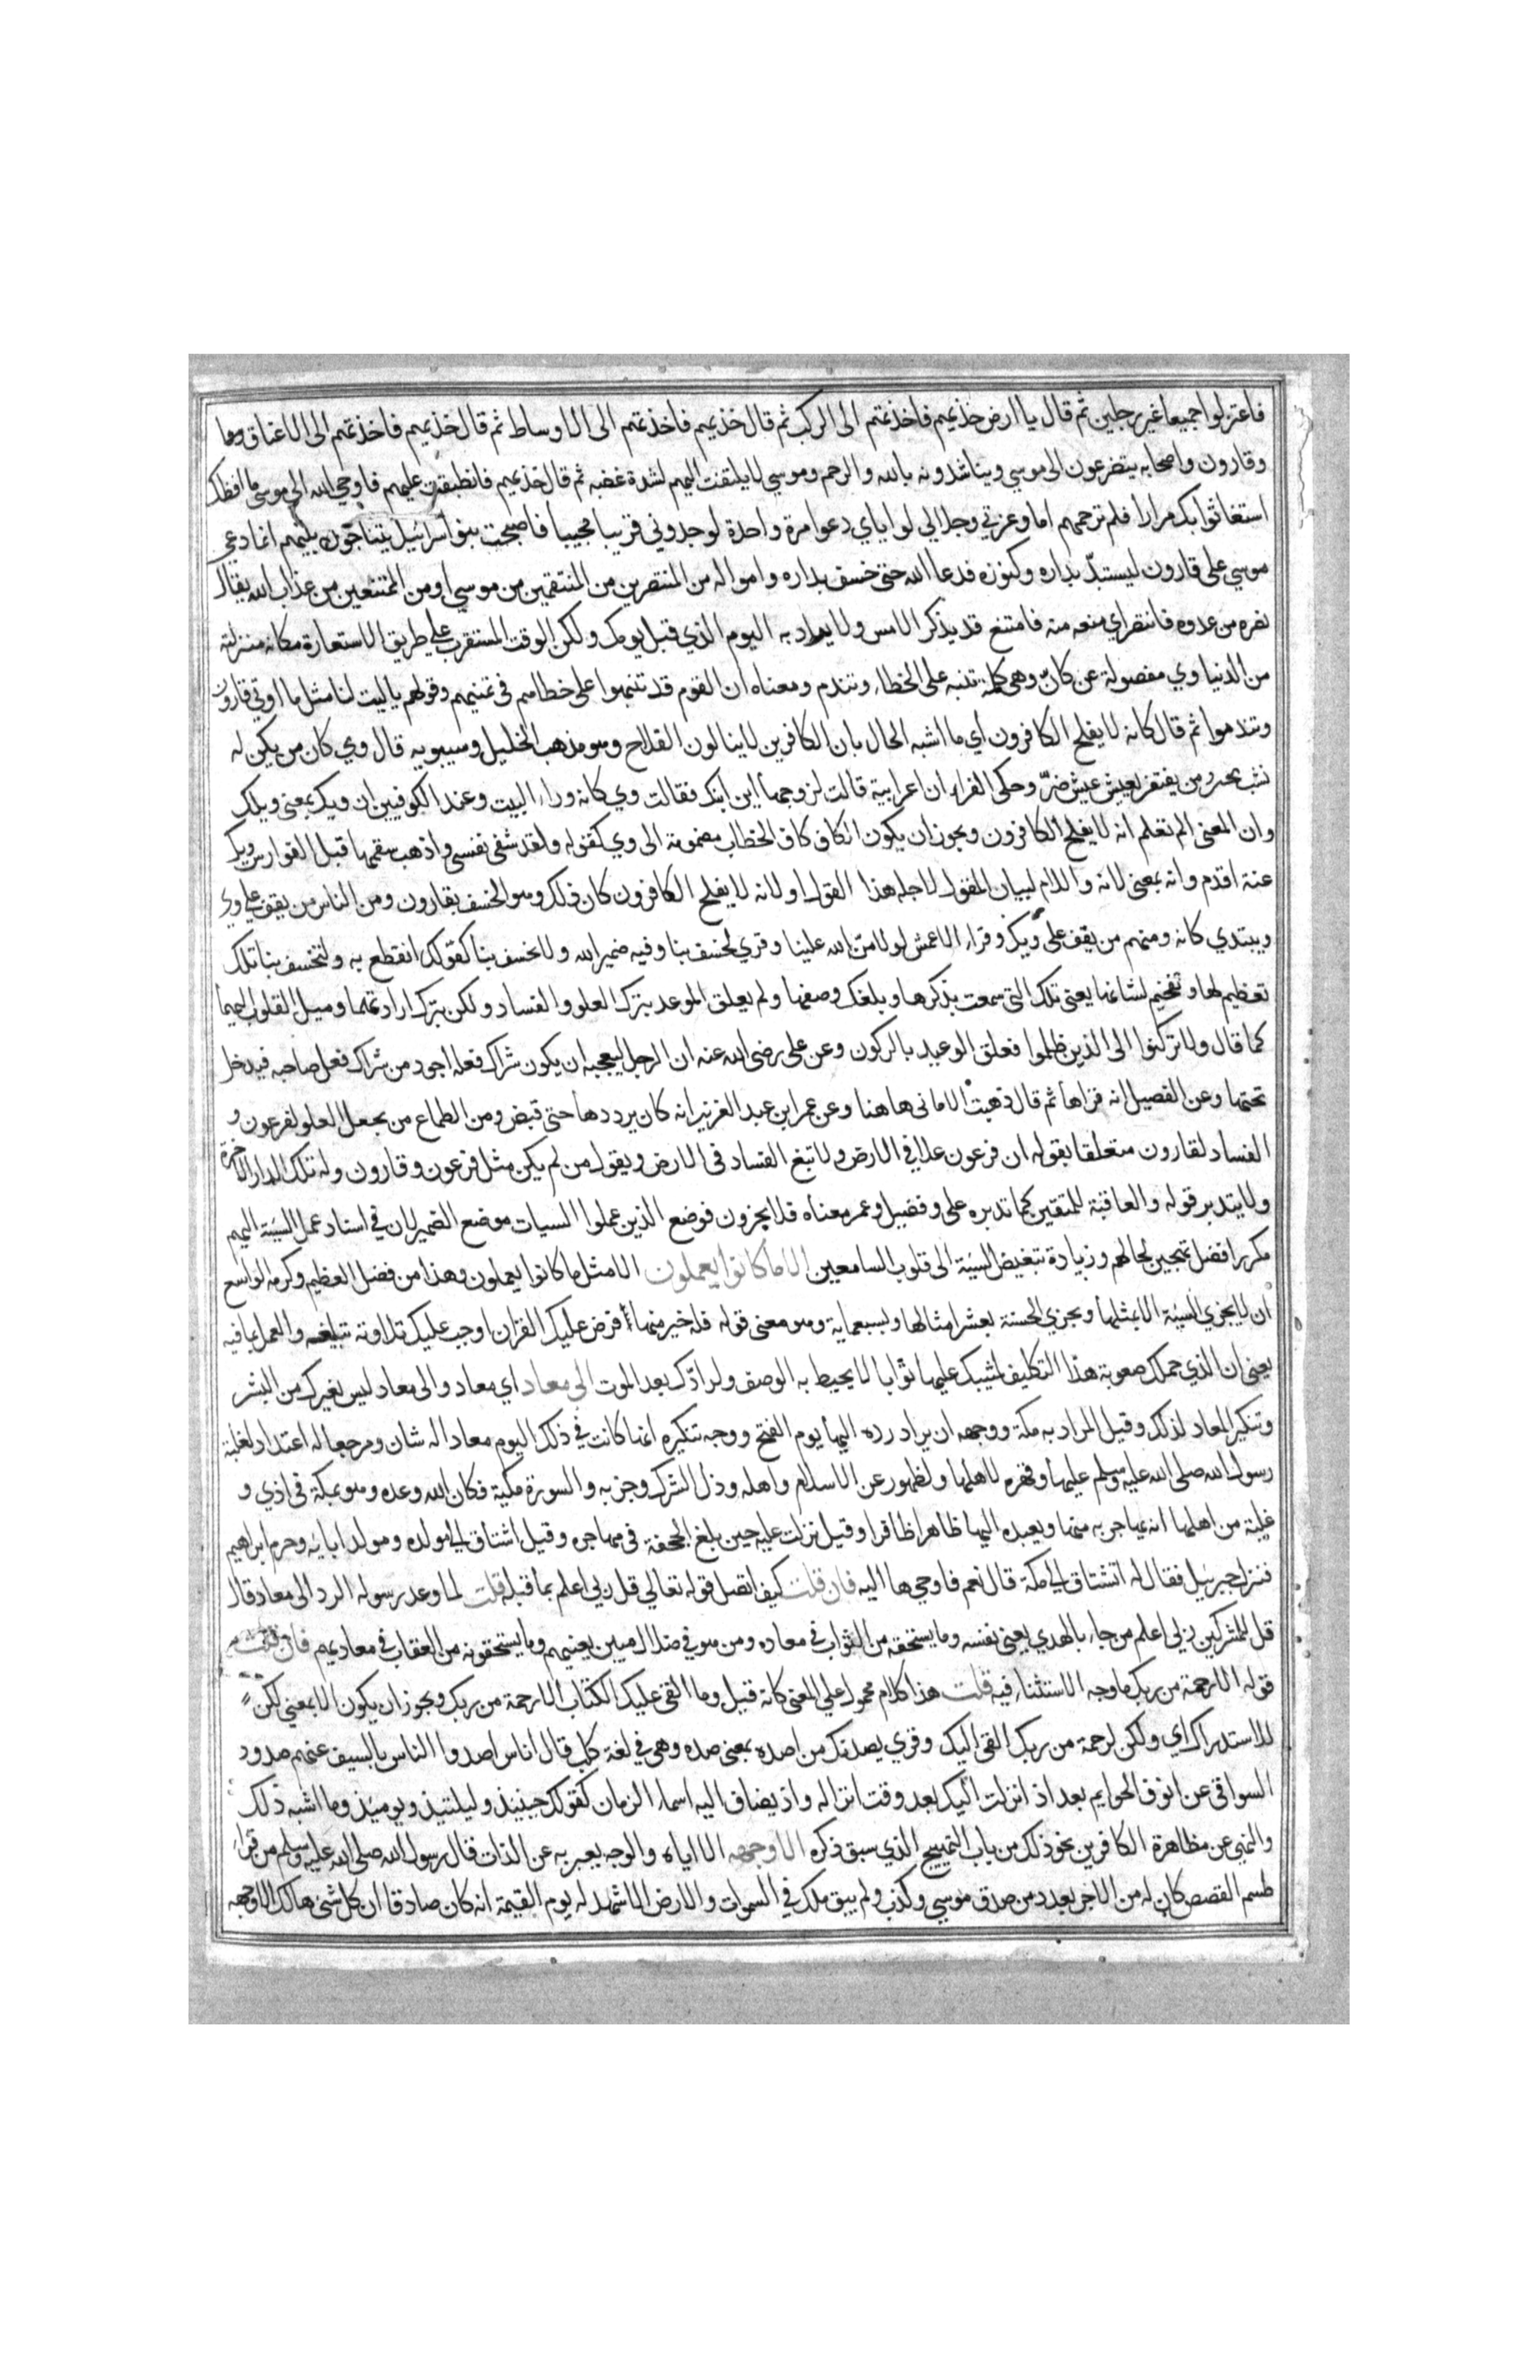 فاعتزلوا جميعا غير رجلين ثم قال يا ارض خذيهم فاخذتهم الى الركب ثم قال خذيهم فاخذتهم الى الاوساط ثم قال خذيهم فاخذتهم الى الاعناق وهما
وقارون واصحابه يتضرعون الى موسي ويناشدونه بالله والرحم وموسي لا يلتفت اليهم لشدة غضبه ثم قال خذيهم فانطبقت عليهم فاوحي الله الي موسى ما افظك
استغاثوا بك مرارا فلم ترحمهم اما وعزتي وجلالي لو اياي دعوا مرة واحدة لوجدوني قريبا مجيبا فاصبحت بنو اسرائيل يتناجون بينهم انما دعي
موسي على قارون ليستبدّ بداره وكنوزه فدعا الله حتى خسف بداره وامواله من المنتصرين من المنتقمين من موسي او من الممتنعين من عذاب الله يقال
نصره من عدوه فانتصر اي منعه منه فامتنع قد يذكر الامس ولا يراد به اليوم الذي قبل يومك ولكن الوقت المستقرب على طريق الاستعارة مكانه منزلته
من الدنيا وي مفصولة عن كانّ وهى كلمة تنبه على الخطاء وتندم ومعناه ان القوم قد تنبهوا على خطاهم فى تمنيهم وقولهم ياليت لنا مثل ما اوتي قارون
وتندموا ثم قال كانه لا يفلح الكافرون أي ما اشبه الحال بان الكافرين لا ينالون الفلاح وهو مذهب الخليل وسيبويه قال وي كان من يكن له
نشب يحبب ومن يفتقر يعيش عيش ضرّ وحكى الفراء ان اعرابية قالت لزوجها اين ابنك فقالت وي كانه وراء البيت وعند الكوفيين ان ويك بمعنى ويلك
وان المعنى الم تعلم انه لا يفلح الكافرون ويجوز ان يكون الكاف كاف الخطاب مضمومة الى وي كقوله ولقد شفى نفسى واذهب سقمها قيل الفوارس ويك
عنتر اقدم وانه بمعنى لانه واللام لبيان المقول لاجله هذا القول او لانه لا يفلح الكافرون كان ذلك وهو الخسف بقارون ومن الناس من يقف على وي
ويبتدي كانه ومنهم من يقف على ويك وقراء الاعمش لولا منّ الله علينا وقري لخسف بنا وفيه ضمير الله ولا نخسف بنا كقولك انقطع به ولتخسف بنا تلك
تعظيم لها وتفخيم لشانها يعنى تلك التى سمعت بذكرها وبلغك وصفها ولم يعلق الموعد بترك العلو والفساد ولكن بترك ارادتهما وميل القلوب اليهما
كما قال ولا تركنوا الى الذين ظلموا فعلق الوعيد بالركون وعن على رضى الله عنه ان الرجل ليعجبه ان يكون شراك نعله اجود من شراك نعل صاحبه فيدخل
تحتها وعن الفضيل انه قراها ثم قال ذهبت الامانى هاهنا وعن عمر ابن عبد العزيز انه كان يرددها حتى قبض ومن الطماع من يجعل العلو لفرعون و
الفساد لقارون متعلقا بقوله ان فرعون علا في الارض ولا تبغ الفساد فى الارض ويقول من لم يكن مثل فرعون وقارون وله تلك الدار الاخرة
ولا يتدبر قوله والعاقبة للمتقين كما تدبره على وفضيل وعمر معناه فلا يجزون فوضع الذين عملوا السيات موضع الضمير لان في اسناد عمل السيئة اليهم
مكررا فضل تهجين لحالهم وزيادة تبغيض السيئة الى قلوب السامعين الا ما كانوا يعملون الا مثل ما كانوا يعملون وهذا من فضل العظيم وكرمه الواسع
ان لا يجزي السيئة الا بمثلها ويجزي الحسنة بعشر امثالها وبسبعماية وهو معنى قوله فله خير منها فرض عليك القران اوجب عليك تلاوته تبليغه والعمل بما فيه
يعنى ان الذي حملك صعوبة هذا التكليف لمثيبك عليها ثوابا لا يحيط به الوصف ولرادّك بعد الموت الى معاد اي معاد والى معاد ليس لغيرك من البشر
وتنكير المعاد لذلك وقيل المراد به مكة ووجهه ان يراد رده اليها يوم الفتح ووجه تنكيره انها كانت في ذلك اليوم معادا له شان ومرجعا له اعتداد لغلبة
رسول الله صلى الله عليه وسلم عليها وقهره لاهلها ولظهور عز الاسلام واهله وذل الشرك وحزبه والسورة مكية فكان الله وعده وهو بمكة فى اذي و
غلبة من اهلها انه يهاجر به منها ويعيده اليها ظاهرا ظافرا وقيل نزلت عليه حين بلغ الجحفة فى مهاجره وقيل اشتاق الي مولده ومولد ابايه وحرم ابراهيم
فنزل جبريل فقال له اتشتاق الي مكة قال نعم فاوحي ها اليه فان قلت كيف اتصل قوله تعالي قل ربى اعلم بما قبله قلت لما وعد رسوله الرد الى معاد قال
قل للمشركين ربى اعلم من جاء بالهدي يعنى نفسه وما يستحقه من الثواب في معاده ومن هو في ضلال مبين يعنيهم وما يستحقونه من العقاب في معاديهم فان قلت
قوله الا رحمة من ربك ما وجه الاستثناء فيه قلت هذا كلام محمول على المعنى كانه قيل وما القى عليك الكتاب الا رحمة من ربك ويجوز ان يكون الا بمعنى لكن
للاستدراك اي ولكن لرحمة من ربك القى اليك وقري يصدنك من اصده بمعنى صده وهى في لغة كلب قال اناس اصدوا الناس بالسيف عنهم صدود
السواقى عن انوف الحوايم بعد اذ انزلت اليك بعد وقت انزاله واذ يضاف اليه اسماء الزمان كقولك حينئذ وليلتئذ ويومئذ وما اشبه ذلك
والنهى عن مظاهرة الكافرين نحو ذلك من باب التهييج الذي سبق ذكره الا وجهه الا اياه والوجه يعبر به عن الذات قال رسول الله صلى الله عليه وسلم من قراء
طسم القصص كان له من الاجر بعدد من صدق موسي وكذب ولم يبق ملك في السموات والارض الا شهد له يوم القيمة انه كان صادقا ان كل شئ هالك الا وجهه